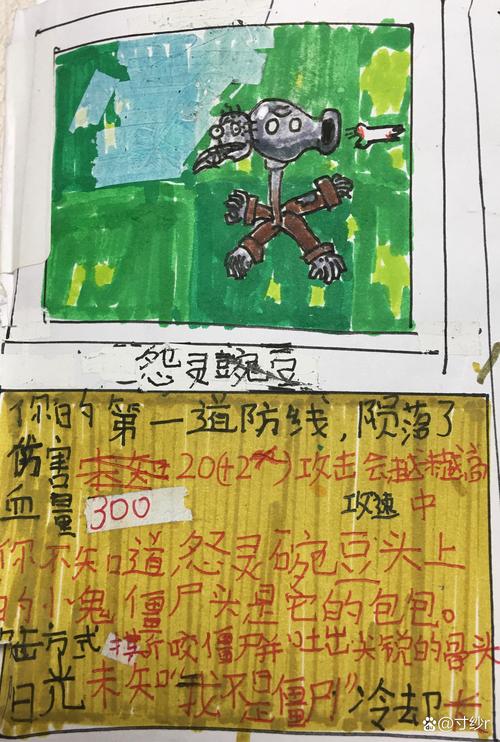 怨灵豌豆
你的第一道防线，陨落了
伤害 20(+2 ) 攻击会越来越高
血量 300 攻速 中
你不知道怨灵豌豆头上
的小鬼僵尸头是它的包包。
击方式 撕咬僵尸并吐出尖锐的骨头
日光 未知 "我不是僵尸" 冷却 长
@寸纱r